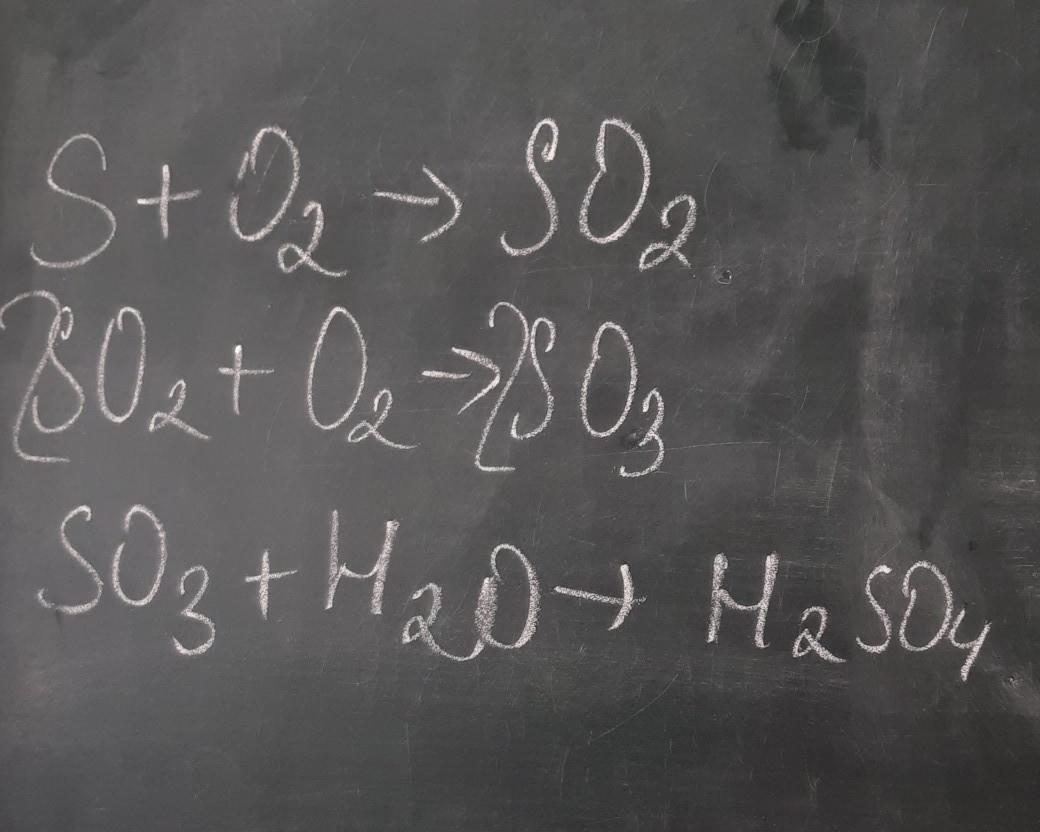 S + O₂ → SO₂
2SO₂ + O₂ → 2SO₃
SO₃ + H₂O → H₂SO₄